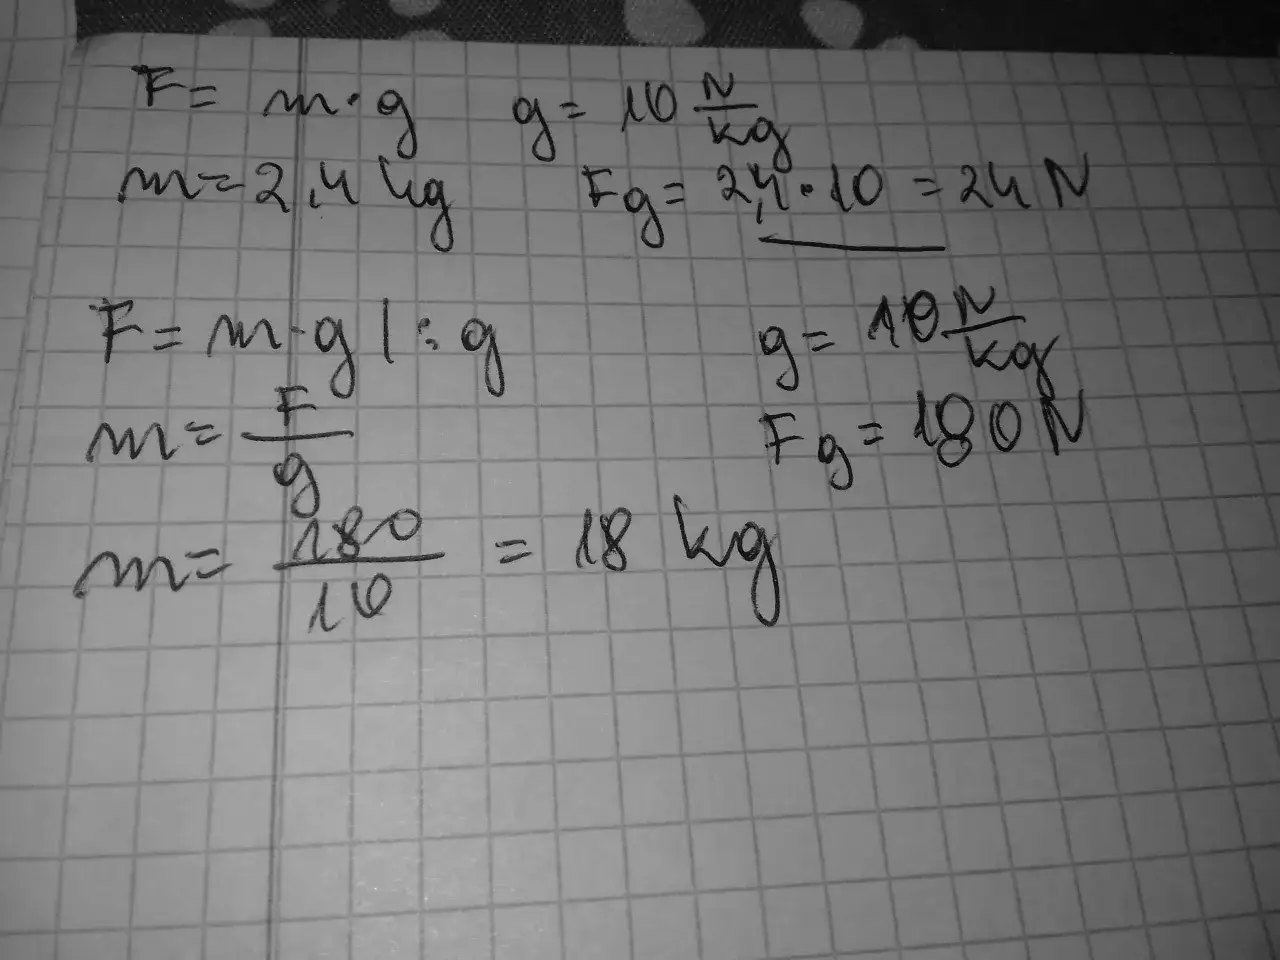 F = m · g g = 10 N/kg
m = 2,4 kg Fg = 2,4 · 10 = 24 N
F = m · g | : g g = 10 N/kg
m = F/g Fg = 180 N
m = 180/10 = 18 kg